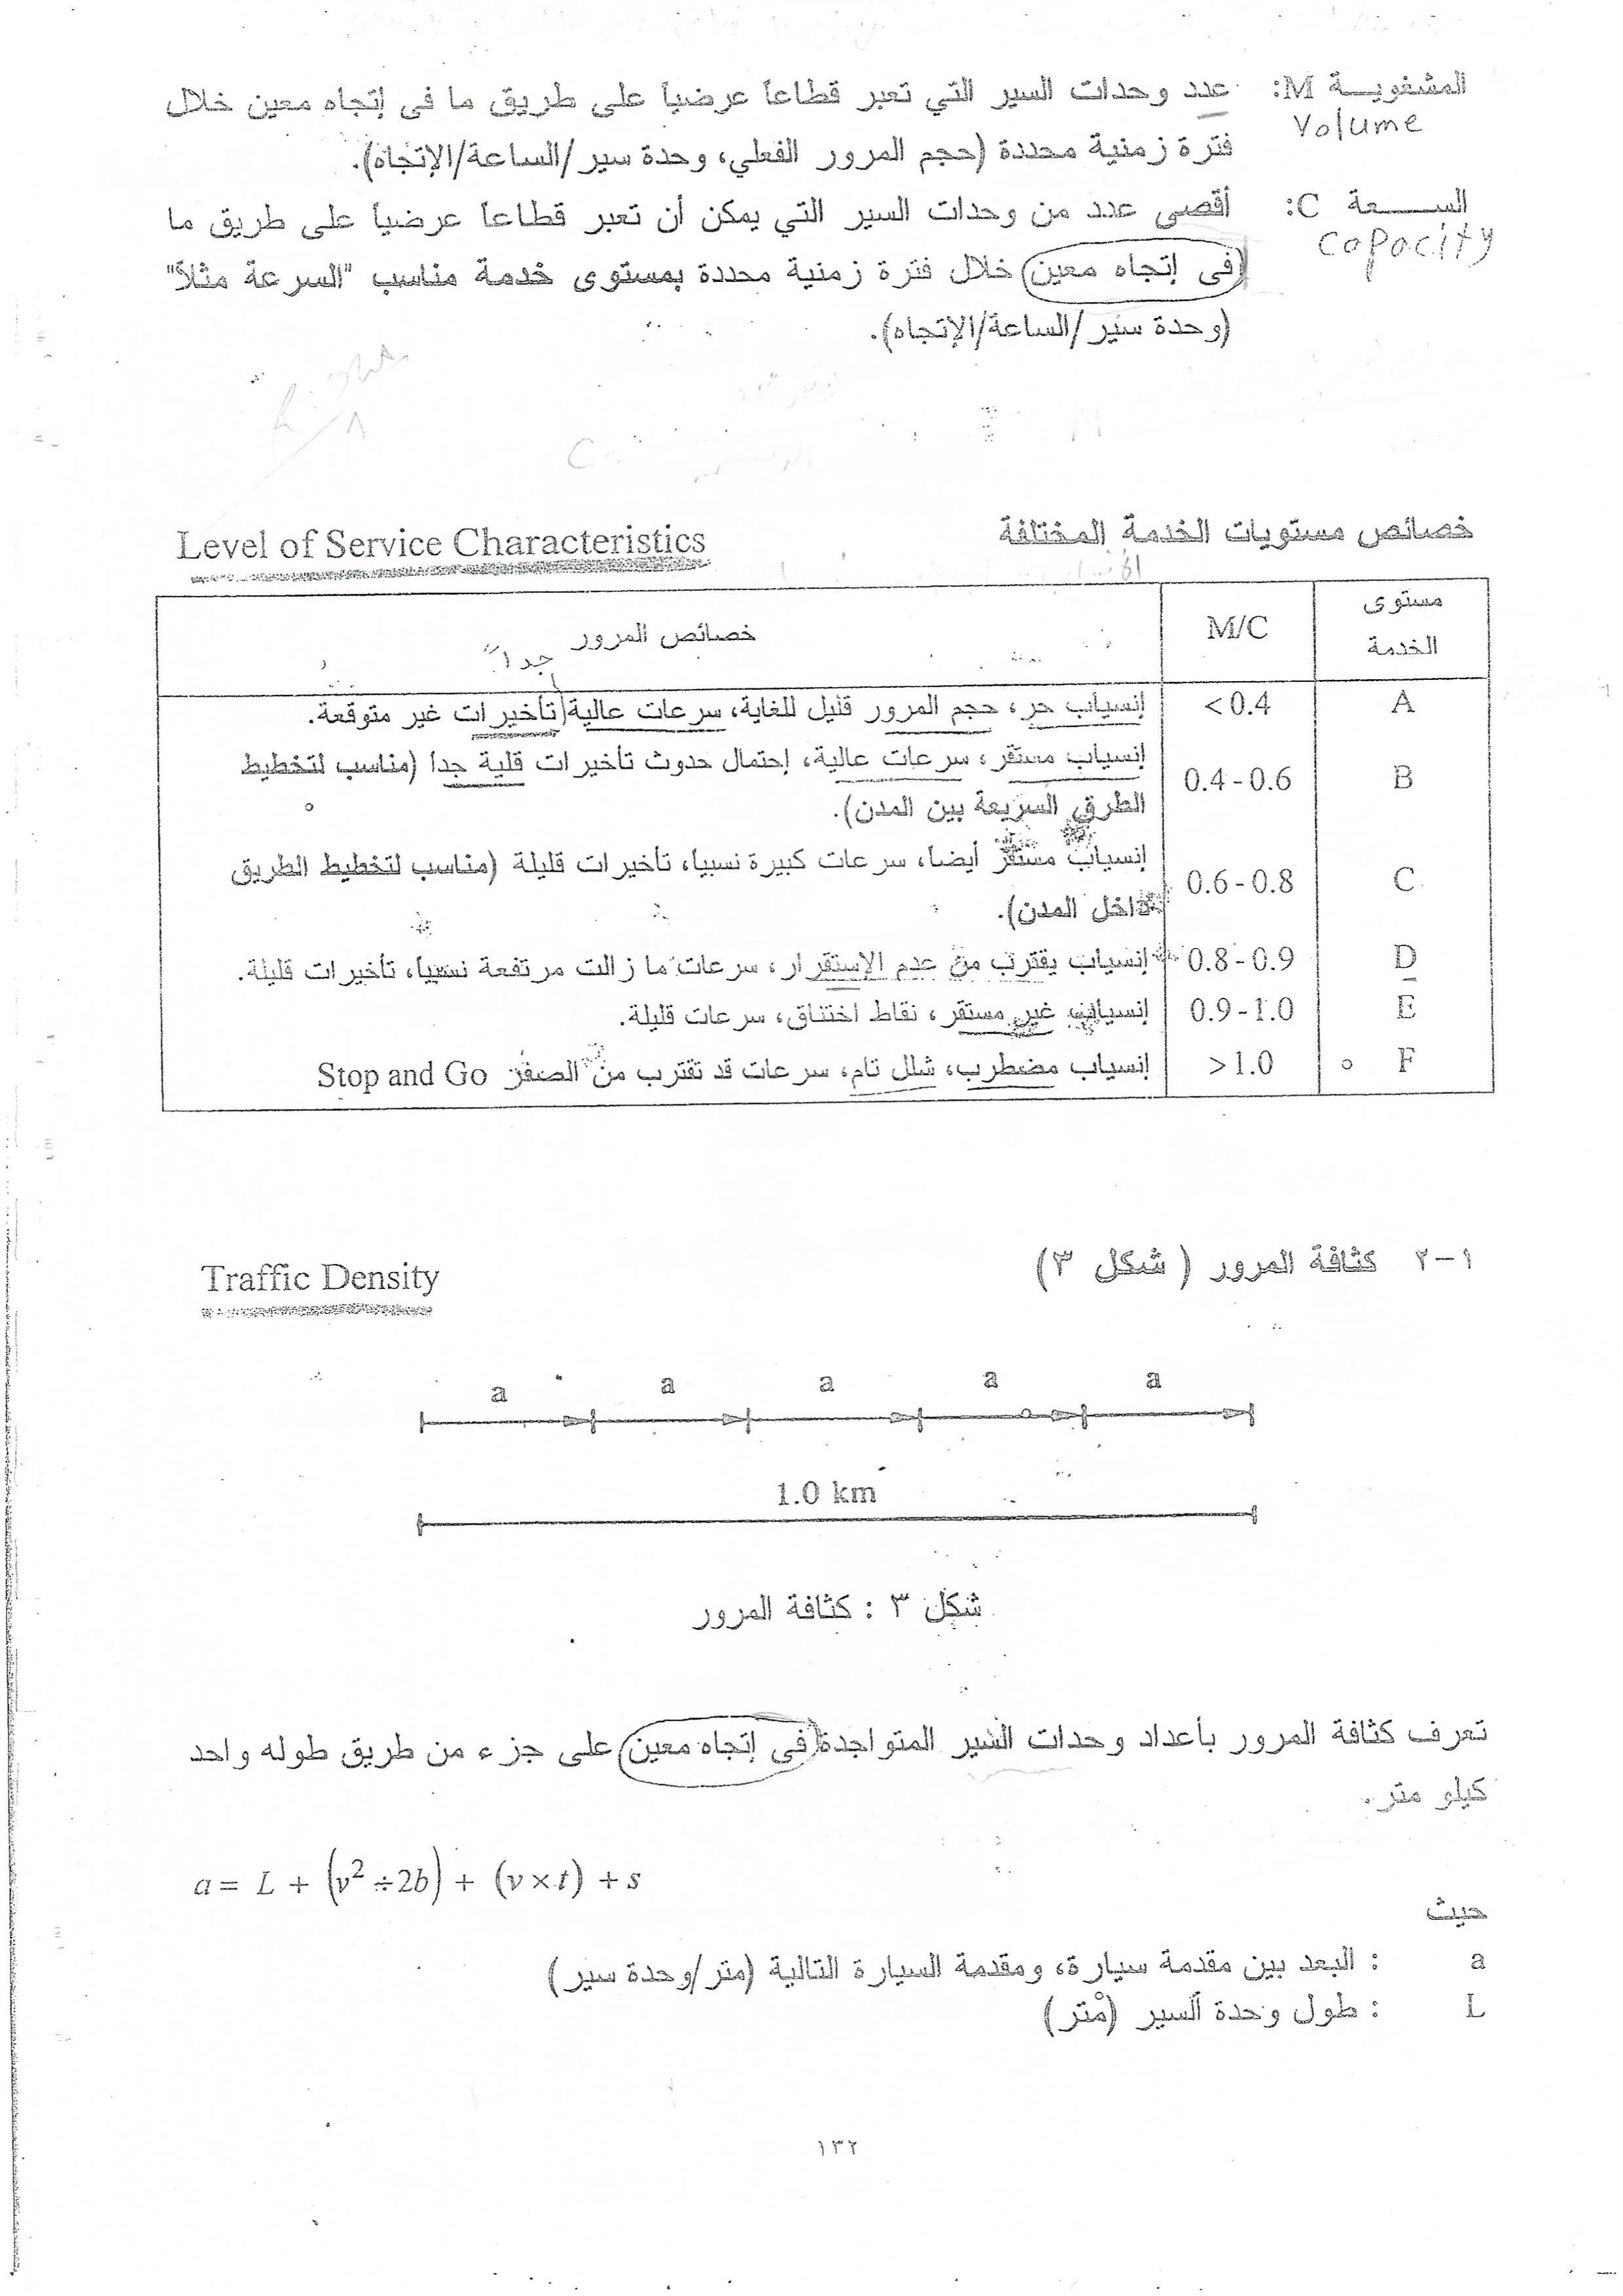 المشغوية M: عدد وحدات السير التي تعبر قطاعاً عرضياً على طريق ما فى إتجاه معين خلال
Volume
فترة زمنية محددة (حجم المرور الفعلي، وحدة سير/الساعة/الإتجاه).
السعة C: أقصى عدد من وحدات السير التي يمكن أن تعبر قطاعاً عرضياً على طريق ما
capacity
فى إتجاه معين خلال فترة زمنية محددة بمستوى خدمة مناسب "السرعة مثلاً"
(وحدة سير/الساعة/الإتجاه).
خصائص مستويات الخدمة المختلفة Level of Service Characteristics
مستوى الخدمة M/C خصائص المرور
جداً
A <0.4 إنسياب حر، حجم المرور قليل للغاية، سرعات عالية، تأخيرات غير متوقعة.
B 0.4-0.6 إنسياب مستقر، سرعات عالية، إحتمال حدوث تأخيرات قلية جدا (مناسب لتخطيط
الطرق السريعة بين المدن).
C 0.6-0.8 إنسياب مستقر أيضا، سرعات كبيرة نسبيا، تأخيرات قليلة (مناسب لتخطيط الطريق
داخل المدن).
D 0.8-0.9 إنسياب يقترب من عدم الإستقرار، سرعات ما زالت مرتفعة نسبيا، تأخيرات قليلة.
E 0.9-1.0 إنسياب غير مستقر، نقاط اختناق، سرعات قليلة.
F >1.0 إنسياب مضطرب، شلل تام، سرعات قد تقترب من الصفر Stop and Go
١-٢ كثافة المرور (شكل ٣) Traffic Density
a a a a a
1.0 km
شكل ٣ : كثافة المرور
تعرف كثافة المرور بأعداد وحدات السير المتواجدة فى إتجاه معين على جزء من طريق طوله واحد
كيلو متر.
a = L + (v² ÷ 2b) + (v × t) + s
حيث
a : البعد بين مقدمة سيارة، ومقدمة السيارة التالية (متر/وحدة سير)
L : طول وحدة السير (متر)
١٣٢